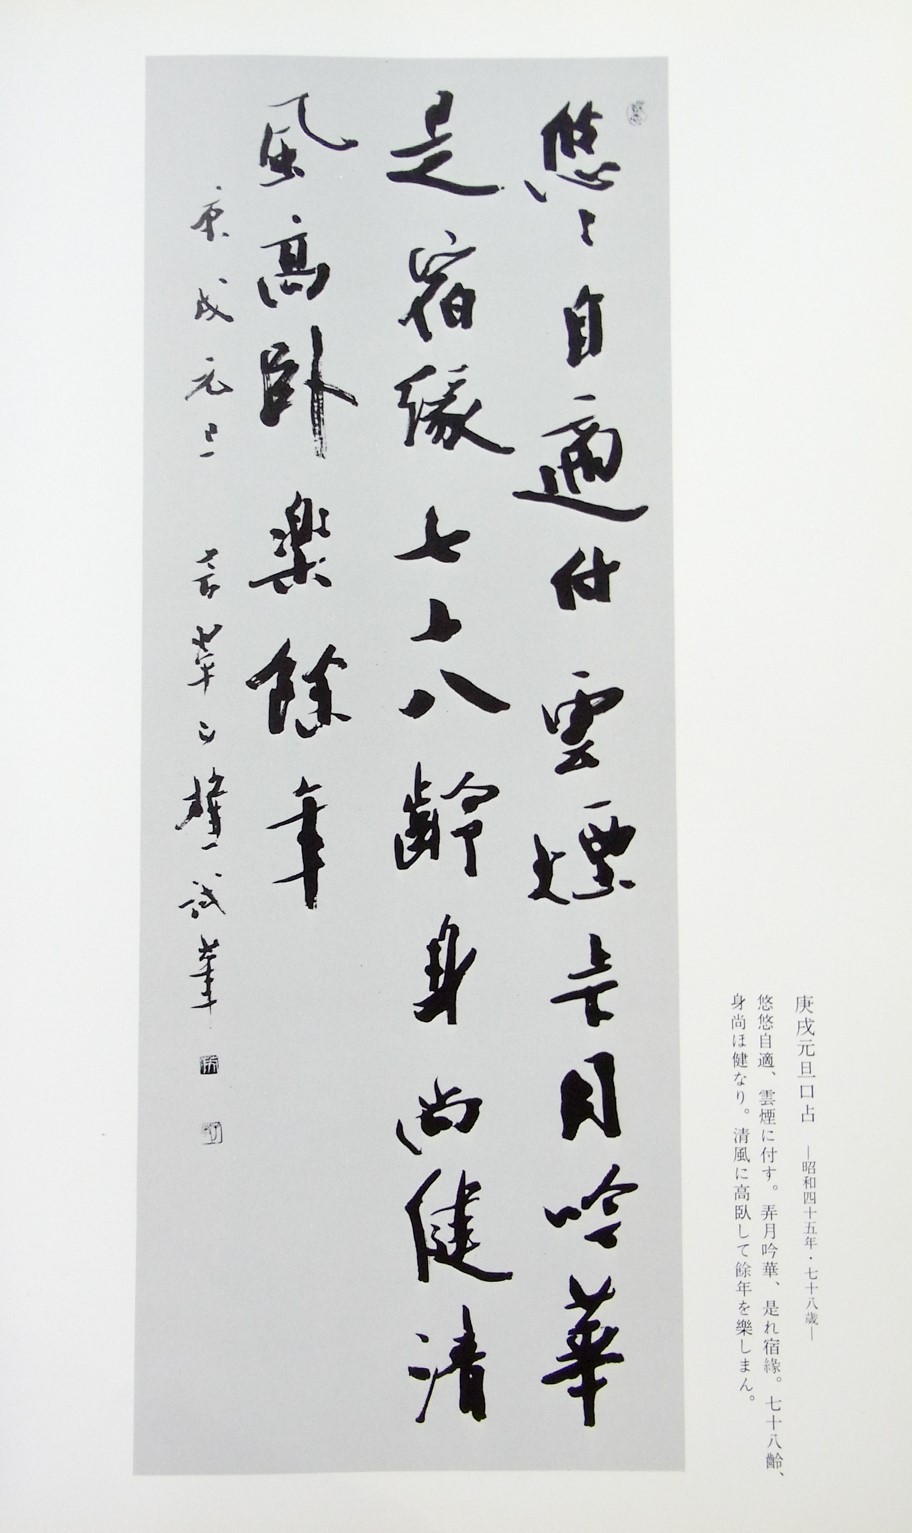 庚戌元旦口占 ―昭和四十五年・七十八歳―
悠悠自適、雲煙に付す。弄月吟華、是れ宿緣。七十八齡、
身尚ほ健なり。清風に高臥して餘年を樂しまん。
悠〻自適付雲煙弄月吟華
是宿緣七十八齡身尚健清
風高臥樂餘年
庚戌元旦